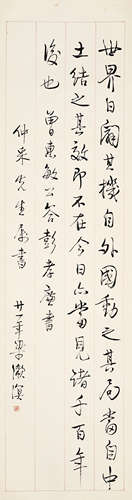 世界日辟其機自外國動之其局當自中
土結之其效即不在今日亦當見諸千百年
後也 曾惠敏公答彭孝廉書
仲采先生屬書
廿一年 梁漱溟